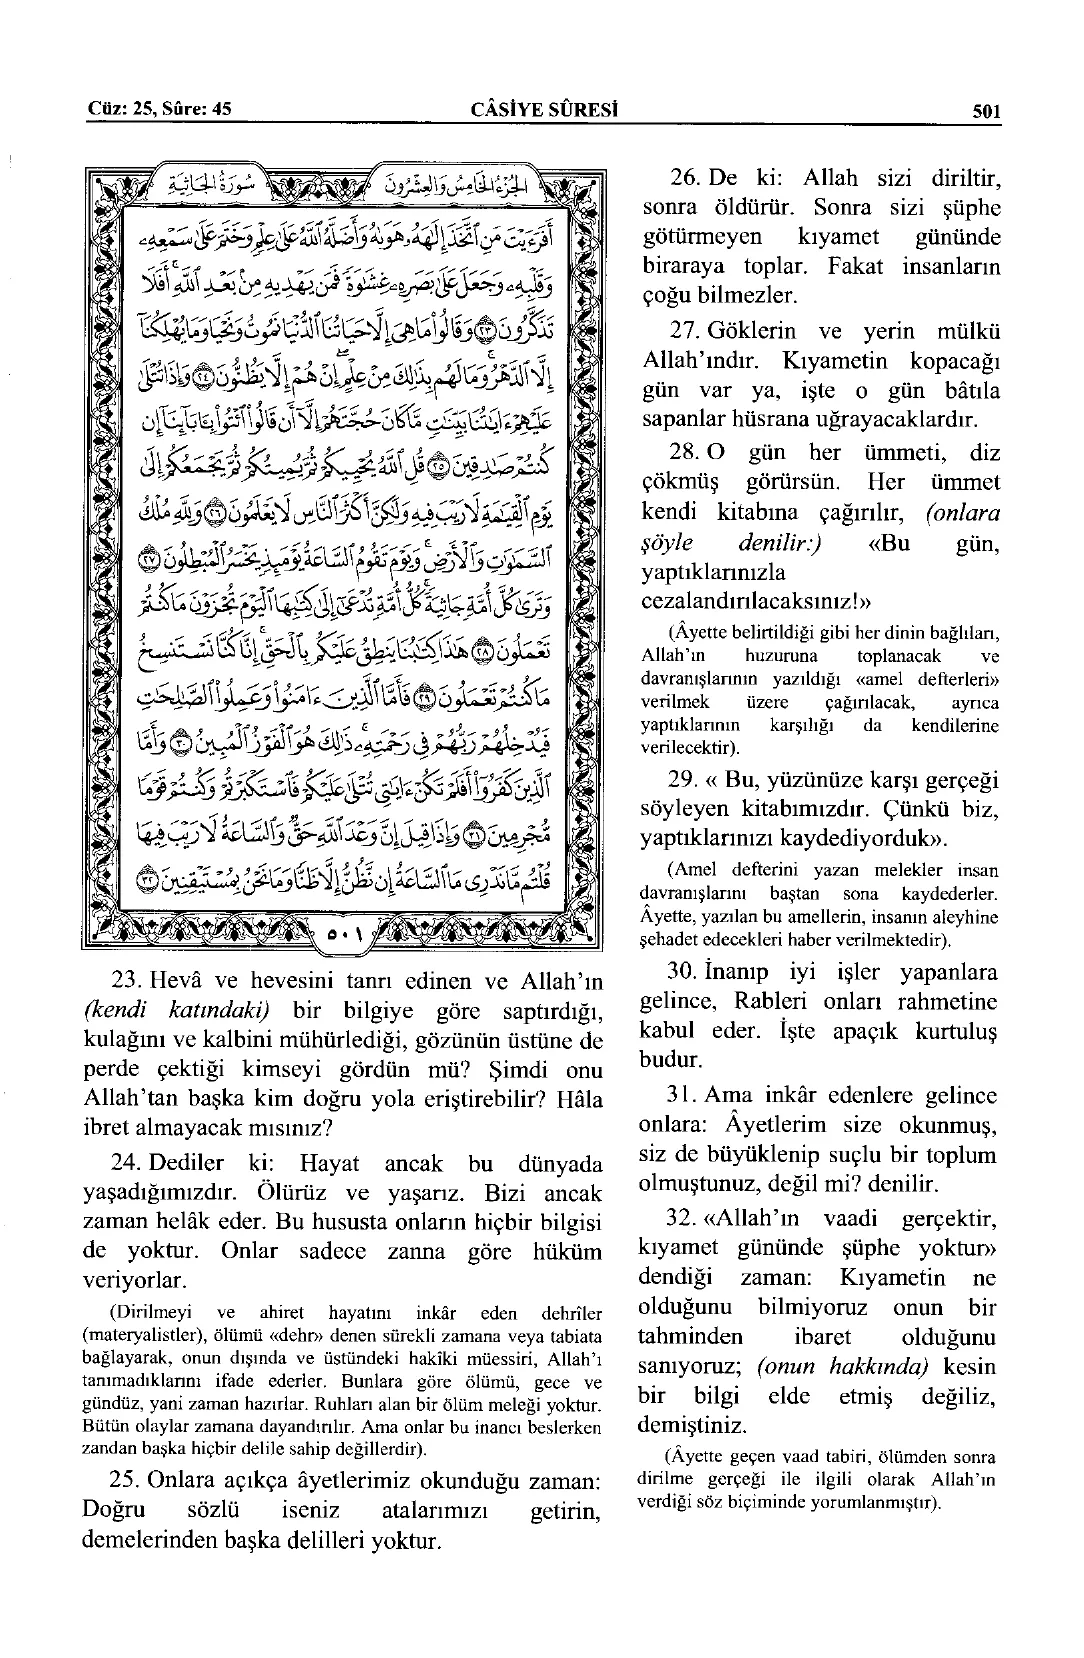 Cüz: 25, Sûre: 45 CÂSİYE SÛRESİ 501
سُورَةُ الْجَاثِيَةِ الْجُزْءُ الْخَامِسُ وَالْعِشْرُونَ
اَفَرَءَيْتَ مَنِ اتَّخَذَ اِلٰهَهُ هَوٰيهُ وَاَضَلَّهُ اللّٰهُ عَلٰى عِلْمٍ وَخَتَمَ عَلٰى سَمْعِهٖ
وَقَلْبِهٖ وَجَعَلَ عَلٰى بَصَرِهٖ غِشَاوَةً فَمَنْ يَهْدٖيهِ مِنْ بَعْدِ اللّٰهِ اَفَلَا
تَذَكَّرُونَ ﴿٢٣﴾ وَقَالُوا مَا هِىَ اِلَّا حَيَاتُنَا الدُّنْيَا نَمُوتُ وَنَحْيَا وَمَا يُهْلِكُنَا
اِلَّا الدَّهْرُ وَمَا لَهُمْ بِذٰلِكَ مِنْ عِلْمٍ اِنْ هُمْ اِلَّا يَظُنُّونَ ﴿٢٤﴾ وَاِذَا تُتْلٰى
عَلَيْهِمْ اٰيَاتُنَا بَيِّنَاتٍ مَا كَانَ حُجَّتَهُمْ اِلَّا اَنْ قَالُوا ائْتُوا بِاٰبَائِنَا اِنْ
كُنْتُمْ صَادِقٖينَ ﴿٢٥﴾ قُلِ اللّٰهُ يُحْيٖيكُمْ ثُمَّ يُمٖيتُكُمْ ثُمَّ يَجْمَعُكُمْ اِلٰى
يَوْمِ الْقِيٰمَةِ لَا رَيْبَ فٖيهِ وَلٰكِنَّ اَكْثَرَ النَّاسِ لَا يَعْلَمُونَ ﴿٢٦﴾ وَلِلّٰهِ مُلْكُ
السَّمٰوَاتِ وَالْاَرْضِ وَيَوْمَ تَقُومُ السَّاعَةُ يَوْمَئِذٍ يَخْسَرُ الْمُبْطِلُونَ ﴿٢٧﴾
وَتَرٰى كُلَّ اُمَّةٍ جَاثِيَةً كُلُّ اُمَّةٍ تُدْعٰى اِلٰى كِتَابِهَا اَلْيَوْمَ تُجْزَوْنَ مَا كُنْتُمْ
تَعْمَلُونَ ﴿٢٨﴾ هٰذَا كِتَابُنَا يَنْطِقُ عَلَيْكُمْ بِالْحَقِّ اِنَّا كُنَّا نَسْتَنْسِخُ
مَا كُنْتُمْ تَعْمَلُونَ ﴿٢٩﴾ فَاَمَّا الَّذٖينَ اٰمَنُوا وَعَمِلُوا الصَّالِحَاتِ
فَيُدْخِلُهُمْ رَبُّهُمْ فٖى رَحْمَتِهٖ ذٰلِكَ هُوَ الْفَوْزُ الْمُبٖينُ ﴿٣٠﴾ وَاَمَّا
الَّذٖينَ كَفَرُوا اَفَلَمْ تَكُنْ اٰيَاتٖى تُتْلٰى عَلَيْكُمْ فَاسْتَكْبَرْتُمْ وَكُنْتُمْ قَوْمًا
مُجْرِمٖينَ ﴿٣١﴾ وَاِذَا قٖيلَ اِنَّ وَعْدَ اللّٰهِ حَقٌّ وَالسَّاعَةُ لَا رَيْبَ فٖيهَا
قُلْتُمْ مَا نَدْرٖى مَا السَّاعَةُ اِنْ نَظُنُّ اِلَّا ظَنًّا وَمَا نَحْنُ بِمُسْتَيْقِنٖينَ ﴿٣٢﴾
٥٠١
23. Hevâ ve hevesini tanrı edinen ve Allah’ın
(kendi katındaki) bir bilgiye göre saptırdığı,
kulağını ve kalbini mühürlediği, gözünün üstüne de
perde çektiği kimseyi gördün mü? Şimdi onu
Allah’tan başka kim doğru yola eriştirebilir? Hâla
ibret almayacak mısınız?
24. Dediler ki: Hayat ancak bu dünyada
yaşadığımızdır. Ölürüz ve yaşarız. Bizi ancak
zaman helâk eder. Bu hususta onların hiçbir bilgisi
de yoktur. Onlar sadece zanna göre hüküm
veriyorlar.
(Dirilmeyi ve ahiret hayatını inkâr eden dehrîler
(materyalistler), ölümü «dehr» denen sürekli zamana veya tabiata
bağlayarak, onun dışında ve üstündeki hakîki müessiri, Allah’ı
tanımadıklarını ifade ederler. Bunlara göre ölümü, gece ve
gündüz, yani zaman hazırlar. Ruhları alan bir ölüm meleği yoktur.
Bütün olaylar zamana dayandırılır. Ama onlar bu inancı beslerken
zandan başka hiçbir delile sahip değillerdir).
25. Onlara açıkça âyetlerimiz okunduğu zaman:
Doğru sözlü iseniz atalarımızı getirin,
demelerinden başka delilleri yoktur.
26. De ki: Allah sizi diriltir,
sonra öldürür. Sonra sizi şüphe
götürmeyen kıyamet gününde
biraraya toplar. Fakat insanların
çoğu bilmezler.
27. Göklerin ve yerin mülkü
Allah’ındır. Kıyametin kopacağı
gün var ya, işte o gün bâtıla
sapanlar hüsrana uğrayacaklardır.
28. O gün her ümmeti, diz
çökmüş görürsün. Her ümmet
kendi kitabına çağırılır, (onlara
şöyle denilir:) «Bu gün,
yaptıklarınızla
cezalandırılacaksınız!»
(Âyette belirtildiği gibi her dinin bağlıları,
Allah’ın huzuruna toplanacak ve
davranışlarının yazıldığı «amel defterleri»
verilmek üzere çağırılacak, ayrıca
yaptıklarının karşılığı da kendilerine
verilecektir).
29. « Bu, yüzünüze karşı gerçeği
söyleyen kitabımızdır. Çünkü biz,
yaptıklarınızı kaydediyorduk».
(Amel defterini yazan melekler insan
davranışlarını baştan sona kaydederler.
Âyette, yazılan bu amellerin, insanın aleyhine
şehadet edecekleri haber verilmektedir).
30. İnanıp iyi işler yapanlara
gelince, Rableri onları rahmetine
kabul eder. İşte apaçık kurtuluş
budur.
31. Ama inkâr edenlere gelince
onlara: Âyetlerim size okunmuş,
siz de büyüklenip suçlu bir toplum
olmuştunuz, değil mi? denilir.
32. «Allah’ın vaadi gerçektir,
kıyamet gününde şüphe yoktur»
dendiği zaman: Kıyametin ne
olduğunu bilmiyoruz onun bir
tahminden ibaret olduğunu
sanıyoruz; (onun hakkında) kesin
bir bilgi elde etmiş değiliz,
demiştiniz.
(Âyette geçen vaad tabiri, ölümden sonra
dirilme gerçeği ile ilgili olarak Allah’ın
verdiği söz biçiminde yorumlanmıştır).